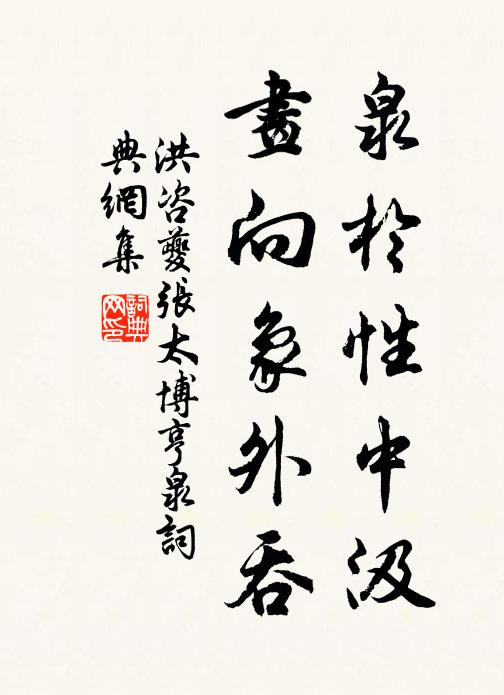 泉於性中汲
畫向象外吞
洪咨夔張太博亨泉詞
典網集
詞典网印